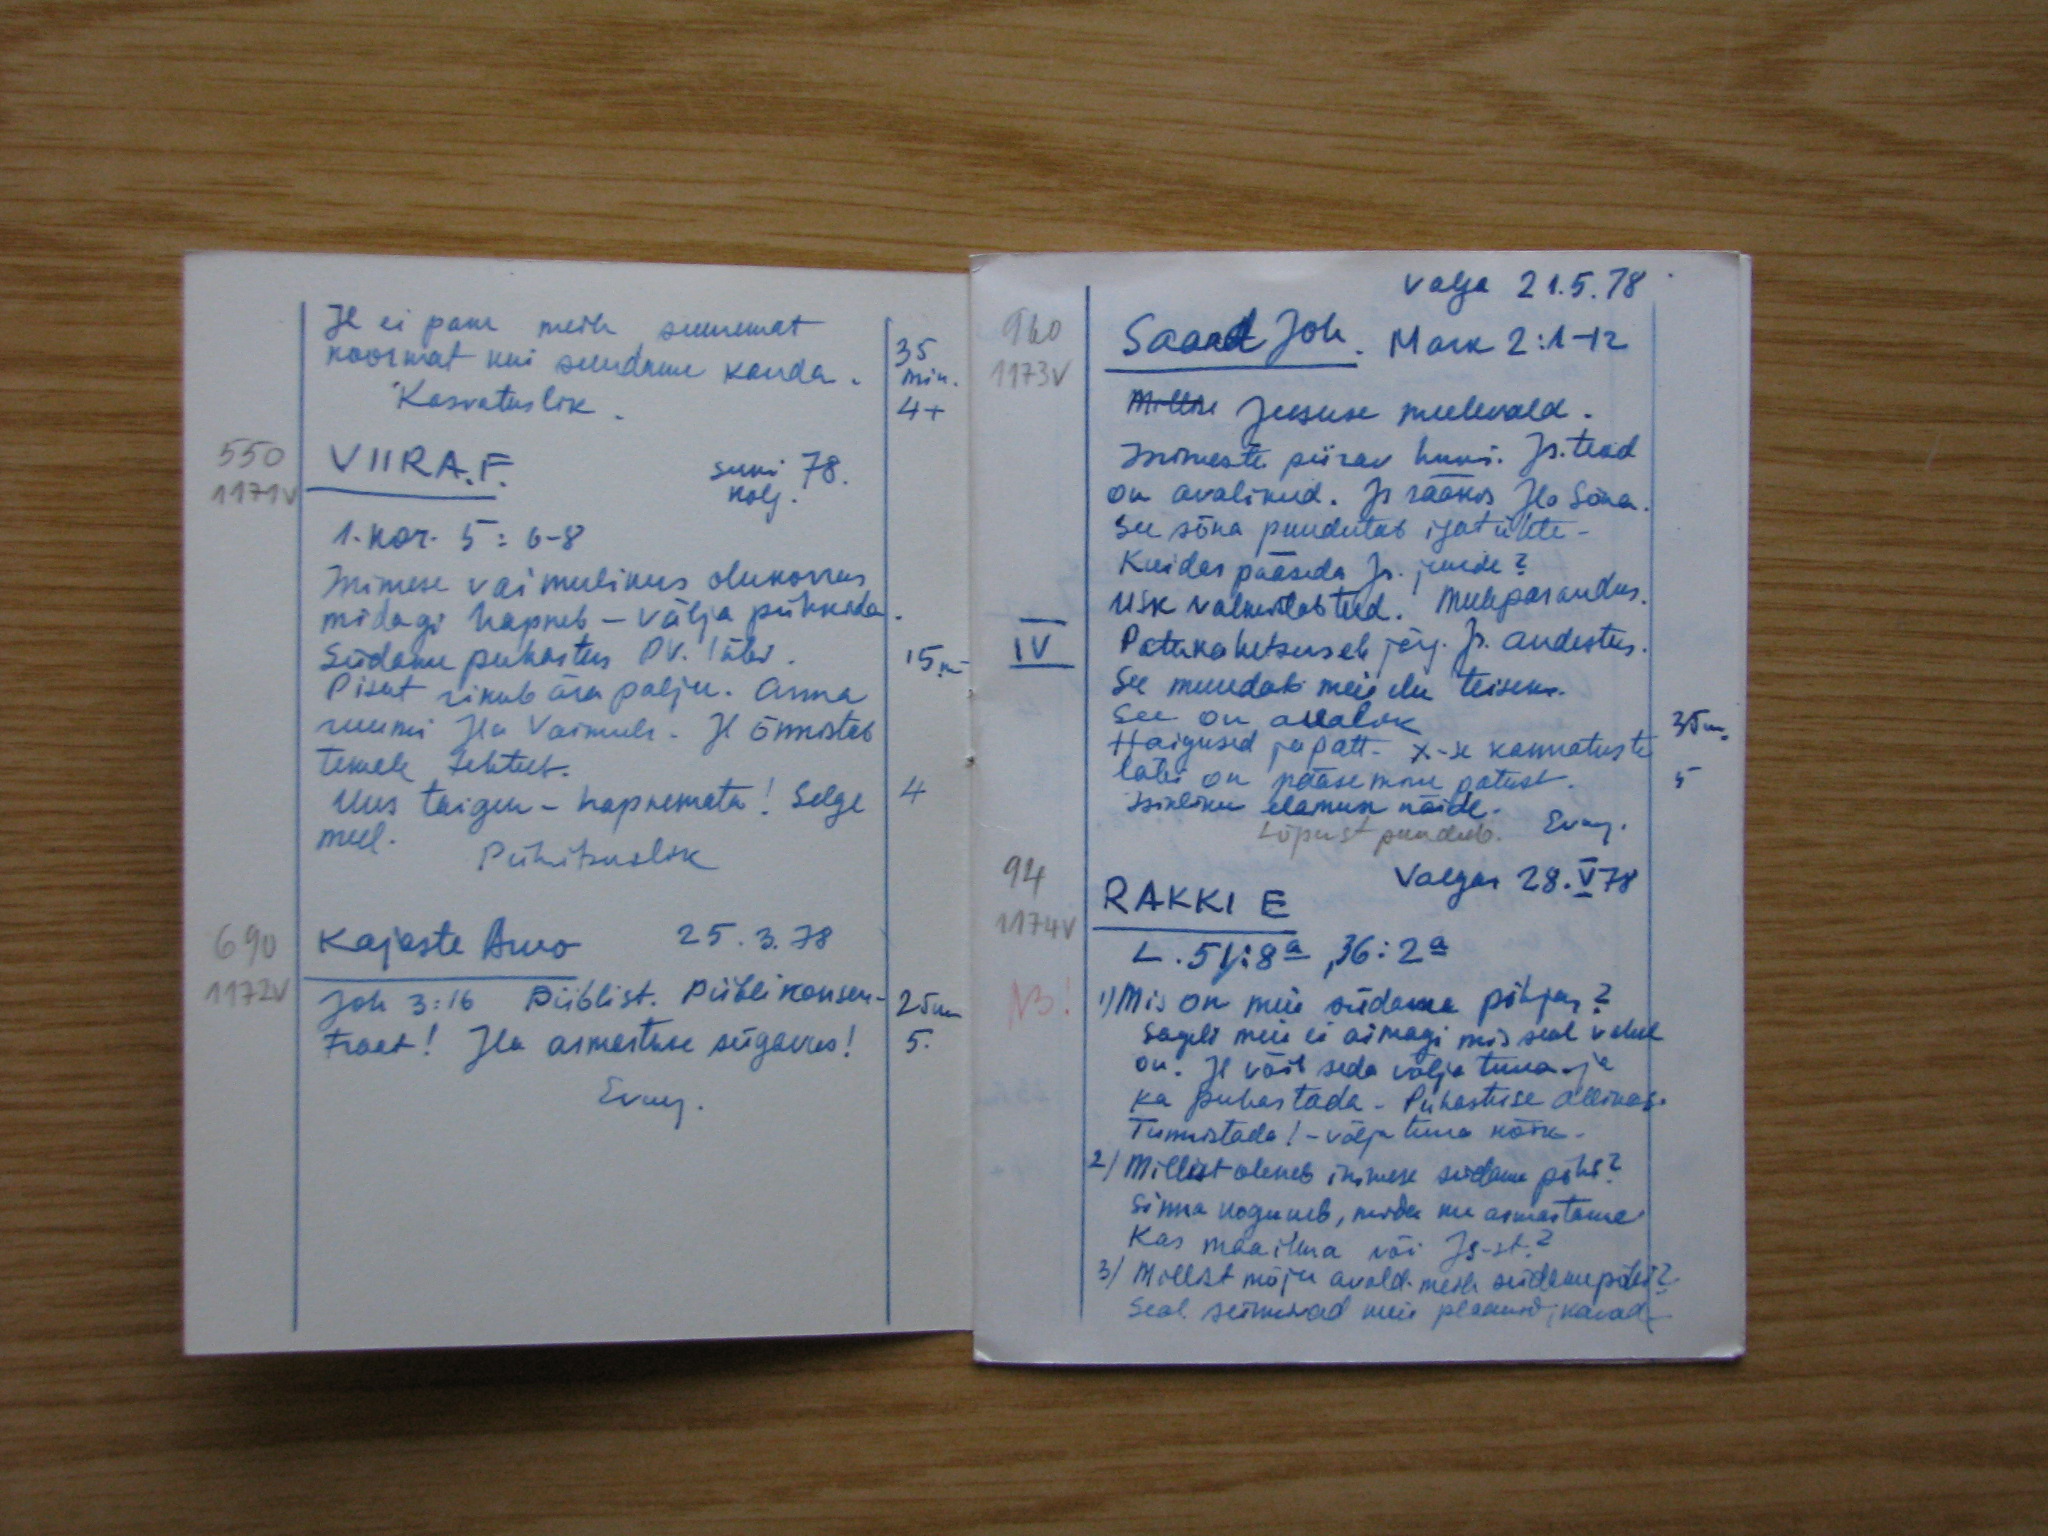 Jl ei pane meile suuremat 35
koormat kui suudame kanda. min.
Kasvatuslik. 4+
550 VIIRA.F. 78.
1171V kolj.
1. Kor. 5:6-8
Inimese vaimulikus olukorras
midagi hapneb – välja pühkida.
Südame puhastus PV. läbi. 15 m
Pisut rikub ära palju. Anna
ruumi Jla Vaimule. Jl Õnnistab
temale
Uus taigen – hapnemata! Selge 4
meel.
Pühitsuslik
690 Kajaste Arvo 25.3.78
1172V
Joh 3:16 Piiblist. Piibli konsen- 25 m
traat! Jla armastuse sügavus! 5.
Evang.
Valga 21.5.78
960 Saard Joh. Mark 2:1-12
1173V
Millise Jeesuse meelevald.
Inimeste piirav hulk. Js. teod
on avalikud. Js rääkis Jla Sõna.
See sõna puudutab igat ühte –
Kuidas pääseda Js. juurde?
Usk valmistab teed. Meeleparandus.
IV Patukahetsusele järg. Js. andestus.
See muudab meie elu teiseks.
See on avalik 35 m.
Haigused ja patt – X-se kannatuste
läbi on pääsemine patust. 5
Isikliku elamuse näide.
Lõpust puudub. Evang.
94 Valgas 28.V 78
RAKKI E
1174V
L. 51:8a, 36:2a
NB! 1) Mis on meie südame põhjas?
Sageli meie ei aimagi mis seal vahel
on. Jl võib seda välja tuua ja
ka puhastada – Puhastuse allikas.
Tunnistada! – välja tuua kõik –
2) Millest oleneb inimese südame põhi?
Sinna koguneb, mida me armastame
Kas maailma või Js-st?
3) Millist mõju avald. meile südame põhi?
Seal sünnivad meie plaanid, kavad –